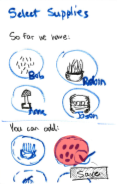 Select Supplies
So far we have:
Bob
Robin
Jason
You can add:
Save